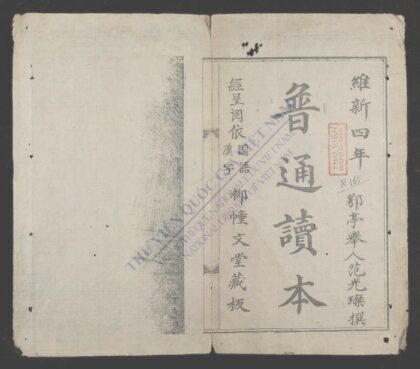 維新四年
鄂亭舉人范光璨撰
普通讀本
經呈依
國語
漢字
柳幢文堂藏板
THƯ VIỆN QUỐC GIA VIỆT NAM
NATIONAL LIBRARY OF VIETNAM